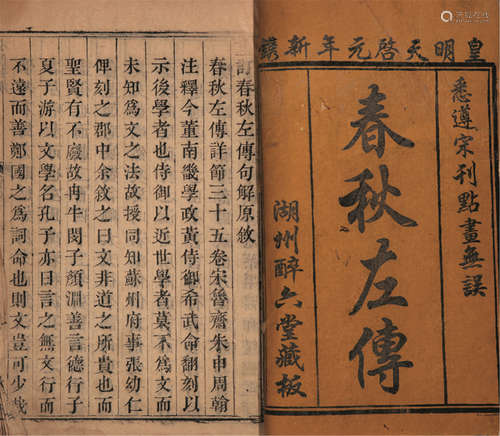 皇明天啓元年新鐫
悉遵宋刊點畫無誤
春秋左傳
湖州醉六堂藏板
訂春秋左傳句解原敘
春秋左傳詳節三十五卷宋魯齋朱申周翰
注釋今董南畿學政黃侍御希武命翻刻以
示後學者也侍御以近世學者莫不爲文而
未知爲文之法故授同知蘇州府事張幼仁
俾刻之郡中余敘之曰文非道之所貴也而
聖賢有不廢故冉牛閔子顏淵善言德行子
夏子游以文學名孔子亦曰言之無文行而
不遠而善鄭國之爲詞命也則文豈可少哉